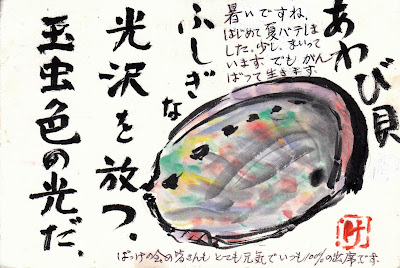 あわび貝
暑いですね。
はじめて夏バテしま
した。少し、まいって
います。でもがん
ばって生きます。
ふしぎな
光沢を放つ、
玉虫色の光だ。
ばっけの会の皆さんもとても元気でいつも100%の出席です。